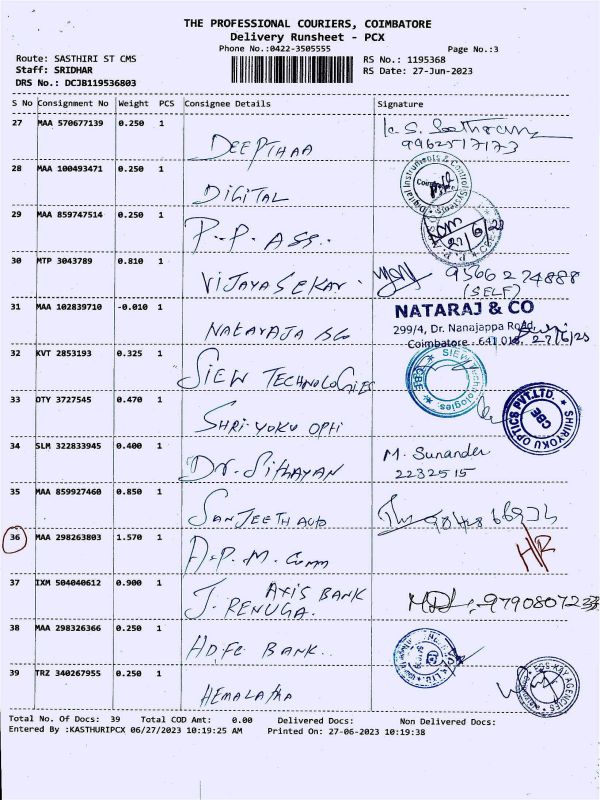 THE PROFESSIONAL COURIERS, COIMBATORE
Delivery Runsheet - PCX
Phone No.:0422-3505555
Page No.:3
Route: SASTHIRI ST CMS
RS No.: 1195368
Staff: SRIDHAR
RS Date: 27-Jun-2023
DRS No.: DCJB119536803
S No Consignment No Weight PCS Consignee Details Signature
27 MAA 570677139 0.250 1 DEEPTHAA
9962517173
28 MAA 100493471 0.250 1 DIGITAL
Digital Instruments & Control Systems
29 MAA 859747514 0.250 1 P.P. ASS..
27/6/23
30 MTP 3043789 0.810 1 VIJAYASEKAR. 9566274888
(SELF)
31 MAA 102839710 -0.010 1 NATARAJA &Co
NATARAJ & CO
299/4, Dr. Nanajappa Road,
Coimbatore - 641 018.
27/6/23
32 KVT 2853193 0.325 1 SIEW TECHNOLOGIES
SIEW Technologies CBE
33 DTY 3727545 0.470 1 SHRI-YOKU OPTI
SHIRYOKU OPTICS PVT.LTD. CBE
34 SLM 322833945 0.400 1 Dr. Sithayan M. Sunander
2232515
35 MAA 859927460 0.850 1 SANJEETH AUTO
36 MAA 298263803 1.570 1 A.P.M. Comm
37 IXM 504040612 0.900 1 AXIS BANK
J. RENUGA.
38 MAA 298326366 0.250 1 HDFC BANK..
39 TRZ 340267955 0.250 1 HEMALATHA
ESS-KAY AGENCIES
Total No. Of Docs: 39 Total COD Amt: 0.00 Delivered Docs: Non Delivered Docs:
Entered By :KASTHURIPCX 06/27/2023 10:19:25 AM Printed On: 27-06-2023 10:19:38